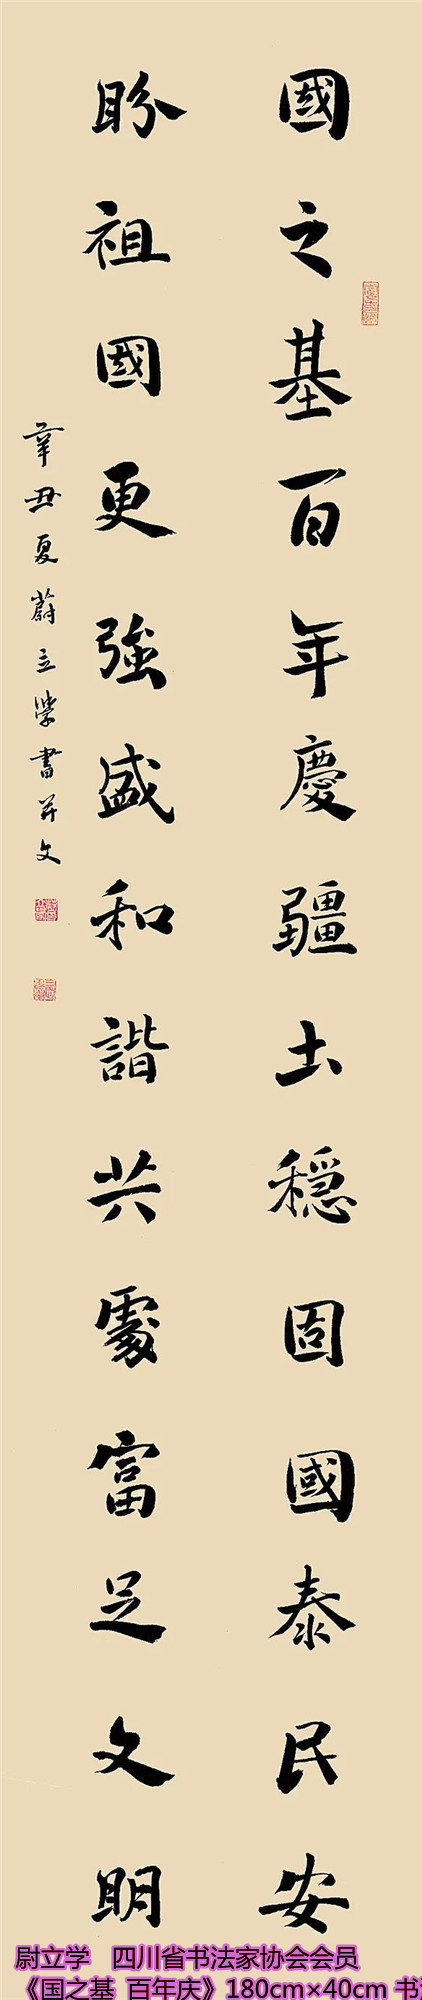 國之基百年慶疆土穩固國泰民安
盼祖國更強盛和諧共處富足文明
辛丑夏蔚立學書并文
尉立学 四川省书法家协会会员
《国之基 百年庆》180cm×40cm 书